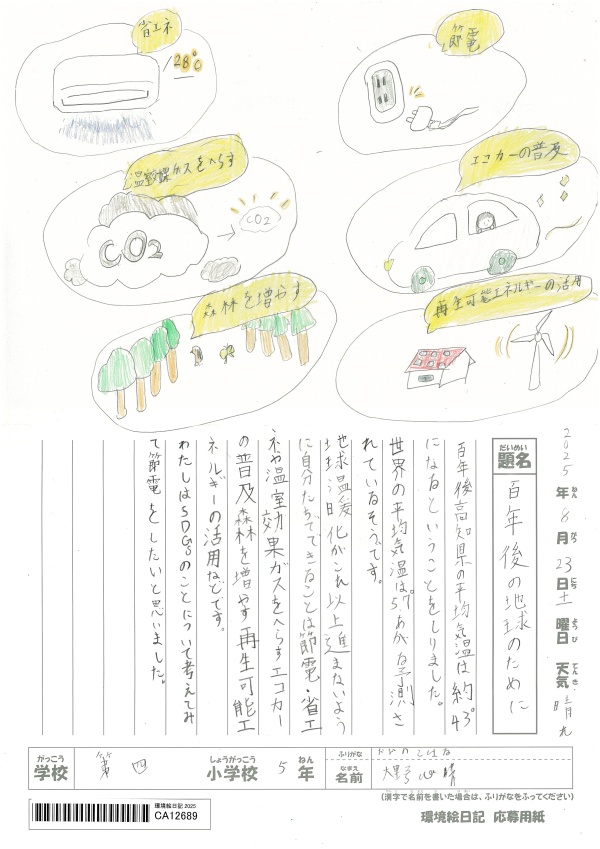 省エネ
28℃
節電
温室効果ガスをへらす
CO2
CO2
エコカーの普及
森林を増やす
再生可能エネルギーの活用
2025年ねん8月がつ23日にち土曜日ようび天気てんき晴れ
だいめい
題名
百年後の地球のために
百年後高知県の平均気温は約43°
になるということをしりました。
世界の平均気温は。5.7あがる予測さ
れているそうです。
地球温暖化がこれ以上進まないよう
に自分たちでできることは節電・省エ
ネや温室効果ガスをへらすエコカー
の普及森林を増やす再生可能エ
ネルギーの活用などです。
わたしはSDGsのことについて考えてみ
て節電をしたいと思いました。
がっこう
学校
第四
しょうがっこう
小学校
5
ねん
年
ふりがな
なまえ
名前
大野心晴
(漢字で名前を書いた場合は、ふりがなをふってください)
環境絵日記2025
CA12689
環境絵日記 応募用紙